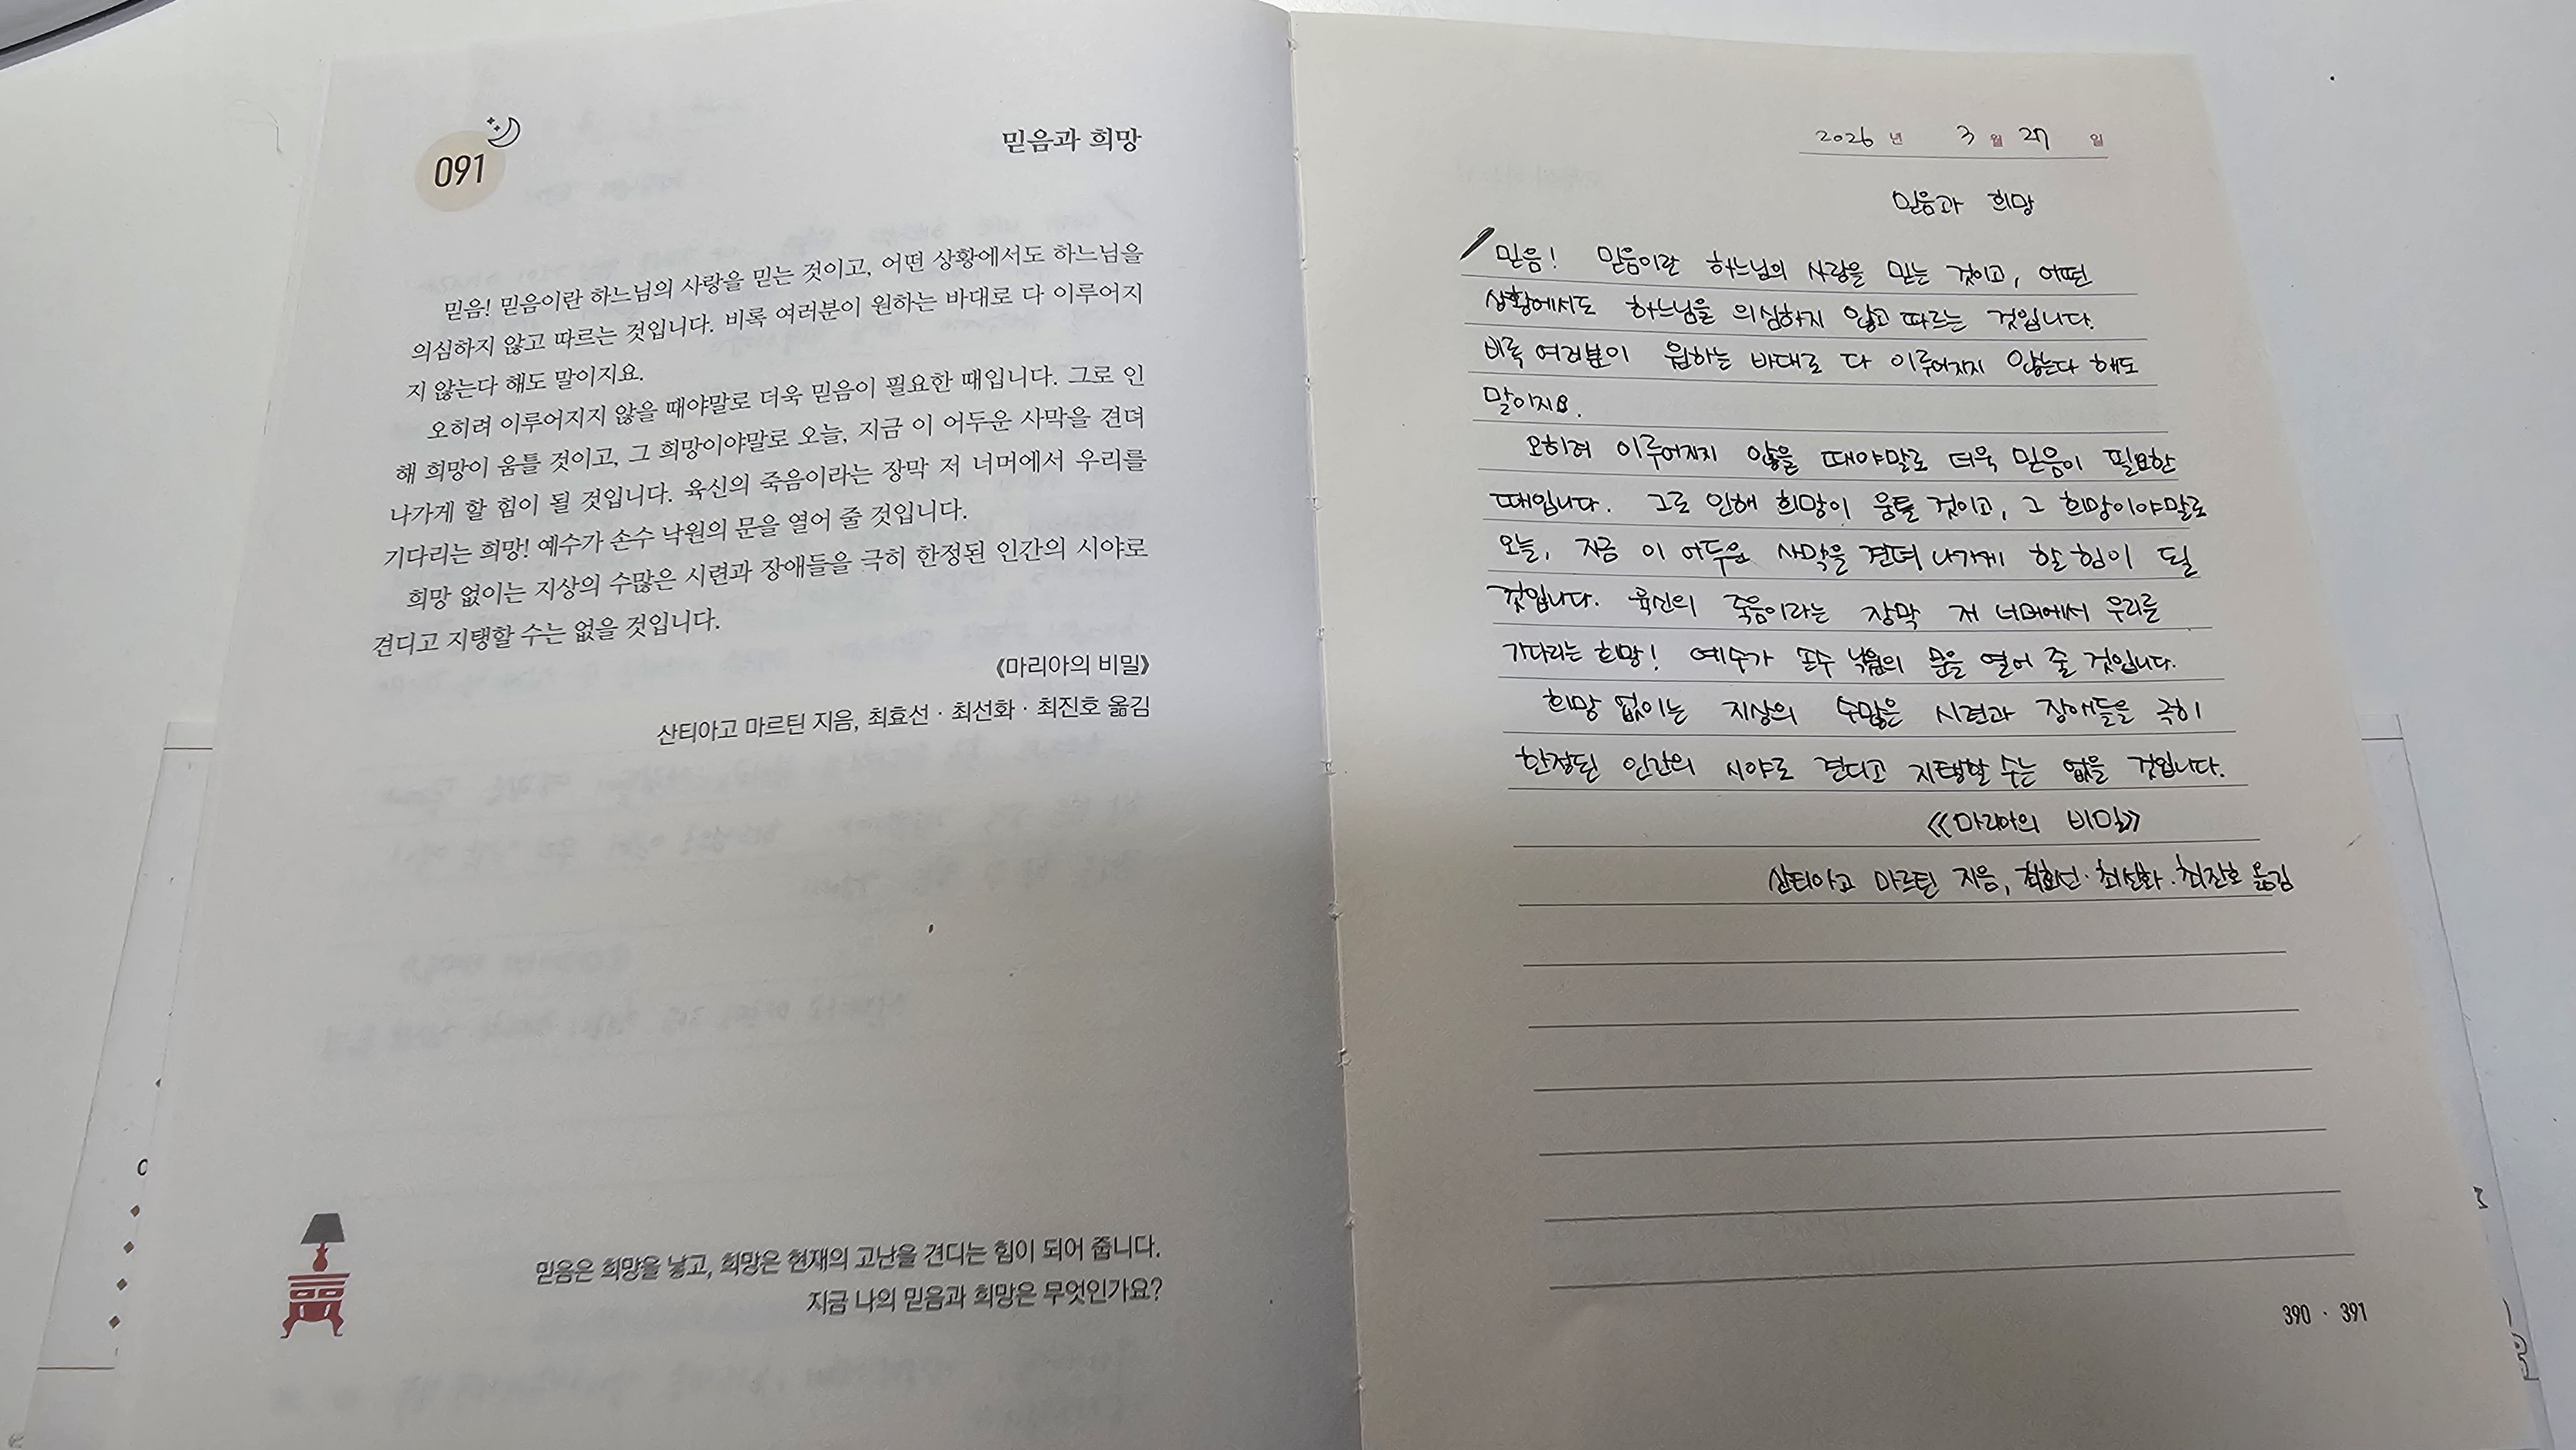 091
믿음과 희망
믿음! 믿음이란 하느님의 사랑을 믿는 것이고, 어떤 상황에서도 하느님을
의심하지 않고 따르는 것입니다. 비록 여러분이 원하는 바대로 다 이루어지
지 않는다 해도 말이지요.
오히려 이루어지지 않을 때야말로 더욱 믿음이 필요한 때입니다. 그로 인
해 희망이 움틀 것이고, 그 희망이야말로 오늘, 지금 이 어두운 사막을 견뎌
나가게 할 힘이 될 것입니다. 육신의 죽음이라는 장막 저 너머에서 우리를
기다리는 희망! 예수가 손수 낙원의 문을 열어 줄 것입니다.
희망 없이는 지상의 수많은 시련과 장애들을 극히 한정된 인간의 시야로
견디고 지탱할 수는 없을 것입니다.
《마리아의 비밀》
산티아고 마르틴 지음, 최효선 · 최선화 · 최진호 옮김
믿음은 희망을 낳고, 희망은 현재의 고난을 견디는 힘이 되어 줍니다.
지금 나의 믿음과 희망은 무엇인가요?
2026 년 3 월 27 일
믿음과 희망
믿음! 믿음이란 하느님의 사랑을 믿는 것이고, 어떤
상황에서도 하느님을 의심하지 않고 따르는 것입니다.
비록 여러분이 원하는 바대로 다 이루어지지 않는다 해도
말이지요.
오히려 이루어지지 않을 때야말로 더욱 믿음이 필요한
때입니다. 그로 인해 희망이 움틀 것이고, 그 희망이야말로
오늘, 지금 이 어두운 사막을 견뎌 나가게 할 힘이 될
것입니다. 육신의 죽음이라는 장막 저 너머에서 우리를
기다리는 희망! 예수가 손수 낙원의 문을 열어 줄 것입니다.
희망 없이는 지상의 수많은 시련과 장애들을 극히
한정된 인간의 시야로 견디고 지탱할 수는 없을 것입니다.
《마리아의 비밀》
산티아고 마르틴 지음, 최효선 · 최선화 · 최진호 옮김
390 · 391